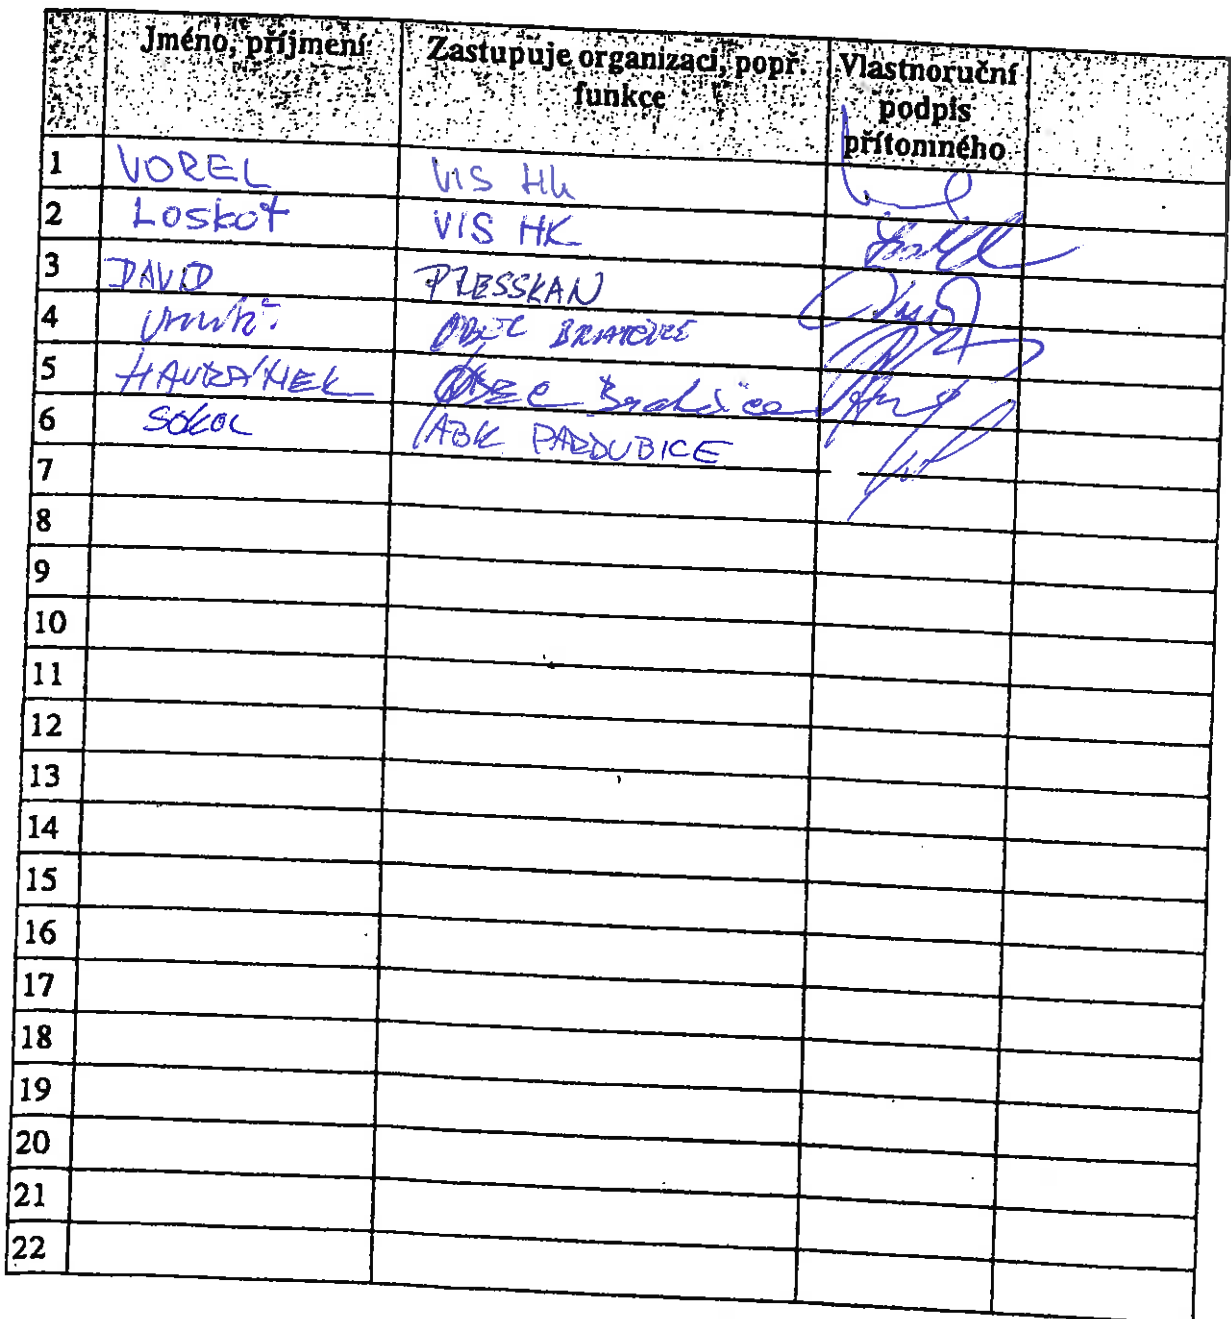 Jméno, příjmení
Zastupuje organizaci, popř.
funkce
Vlastnoruční
podpis
přítomného
1 VOREL VIS HK
2 Loskot VIS HK
3 DAVID PRESSKAN
4 OBEC
5 HAVRÁNEK Obec
6 SOKOL ABK PARDUBICE
7
8
9
10
11
12
13
14
15
16
17
18
19
20
21
22